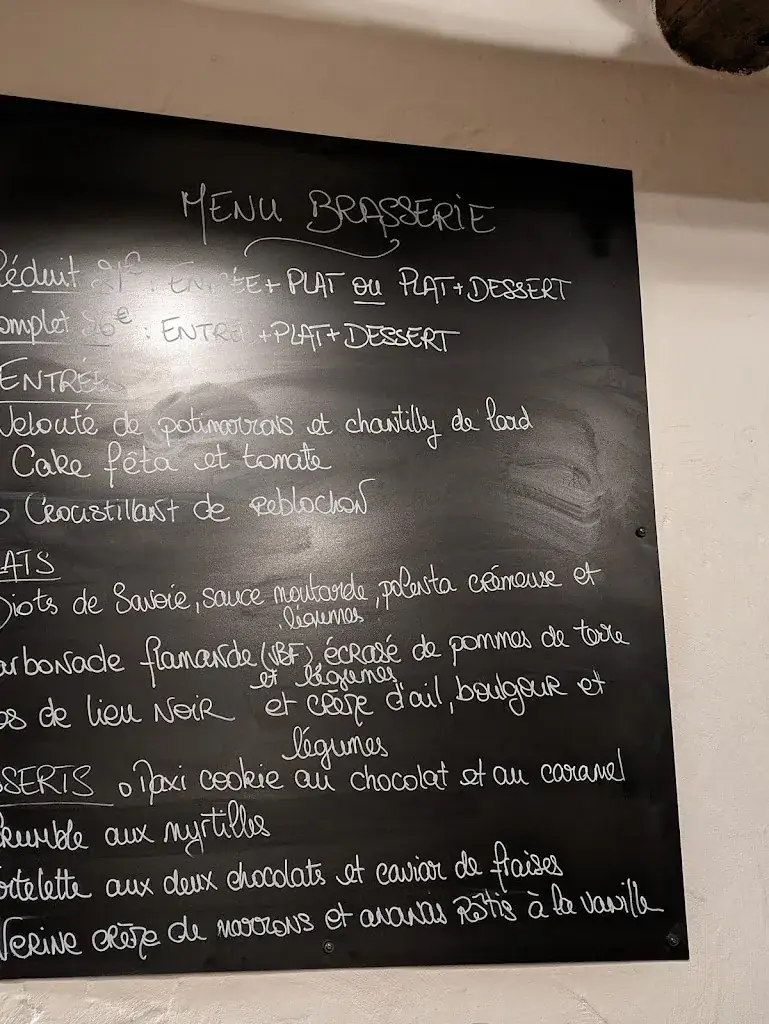 MENU BRASSERIE
Réduit 21€ : ENTRÉE + PLAT ou PLAT + DESSERT
omplet 26€ : ENTRE +PLAT+ DESSERT
ENTRÉES
Velouté de potimarrons et chantilly de lard
Cake fêta et tomate
o Croustillant de Reblochon
ATS
Diots de Savoie, sauce moutarde, polenta crémeuse et
légumes
arbonade flamande (VBF), écrasé de pommes de terre
et légumes
os de lieu Noir et crème d'ail, boulgour et
légumes
SSERTS o Maxi cookie au chocolat et au caramel
krumble aux myrtilles
rtelette aux deux chocolats et caviar de fraises
Verine crème de marrons et ananas Rôtis à la vanille